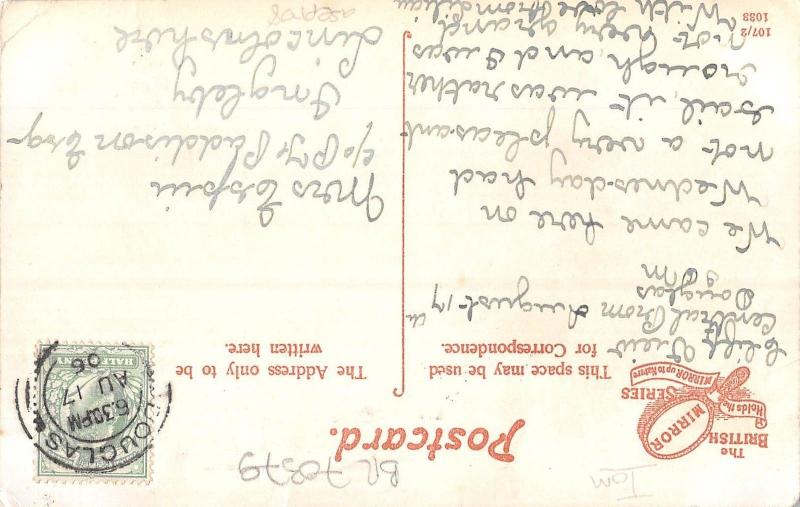 Iom
BL 70879
The
BRITISH
MIRROR
SERIES
Holds the
MIRROR up to Nature
Postcard.
This space may be used
for Correspondence.
The Address only to be
written here.
HALFPENNY
DOUGLAS
6.30PM
AU 17
06
Cliff View
Central Prom August 17th
Douglas
IOM
We came here on
Wednesday had
not a very pleasant
sail, it was rather
rough and I was
not very grand.
With love from
Mrs Espin
c/o Paddison Esq
Ingleby
Lincolnshire
107/2
1033